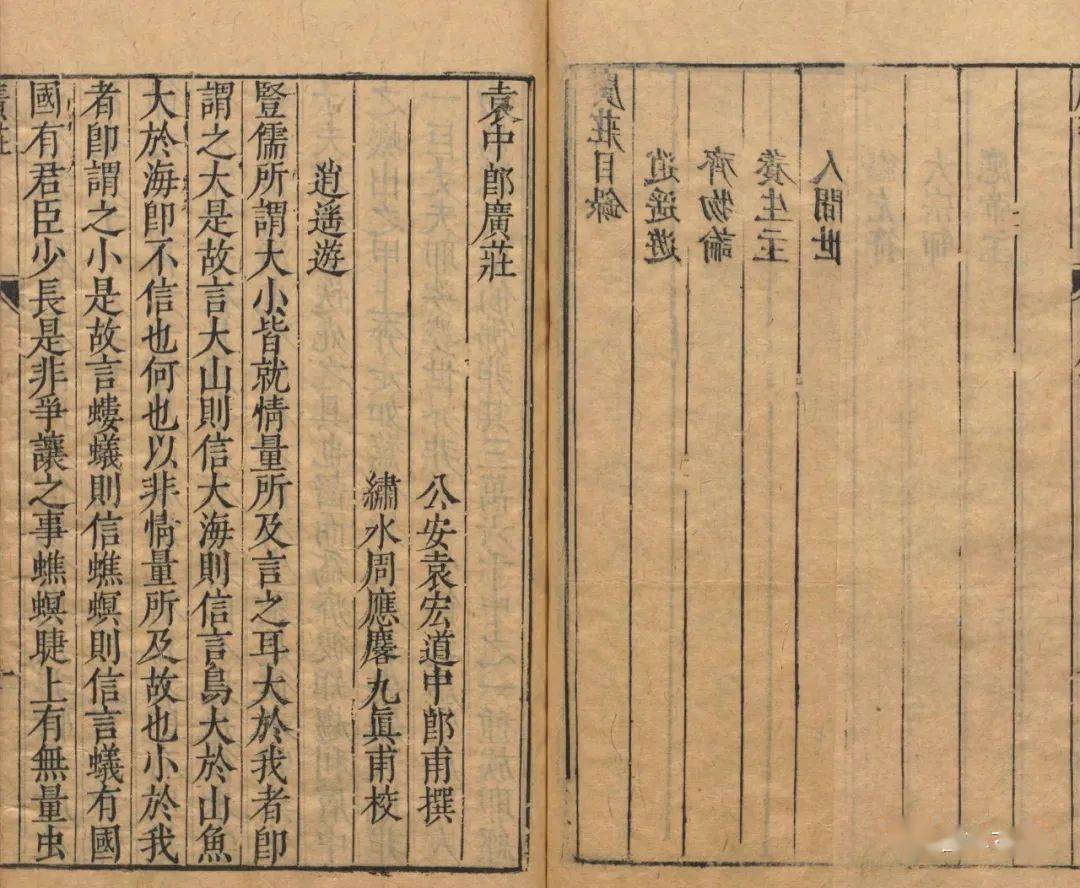 廣莊目録
逍遥遊
齊物論
養生主
人間世
德充符
大宗師
應帝王
袁中郎廣莊
公安袁宏道中郎甫撰
繡水周應麐九眞甫校
逍遥遊
豎儒所謂大小皆就情量所及言之耳大於我者卽
謂之大是故言大山則信大海則信言鳥大於山魚
大於海卽不信也何也以非情量所及故也小於我
者卽謂之小是故言螻蟻則信蟭螟則信言蟻有國
國有君臣少長是非爭讓之事蟭螟睫上有無量虫
廣莊
一